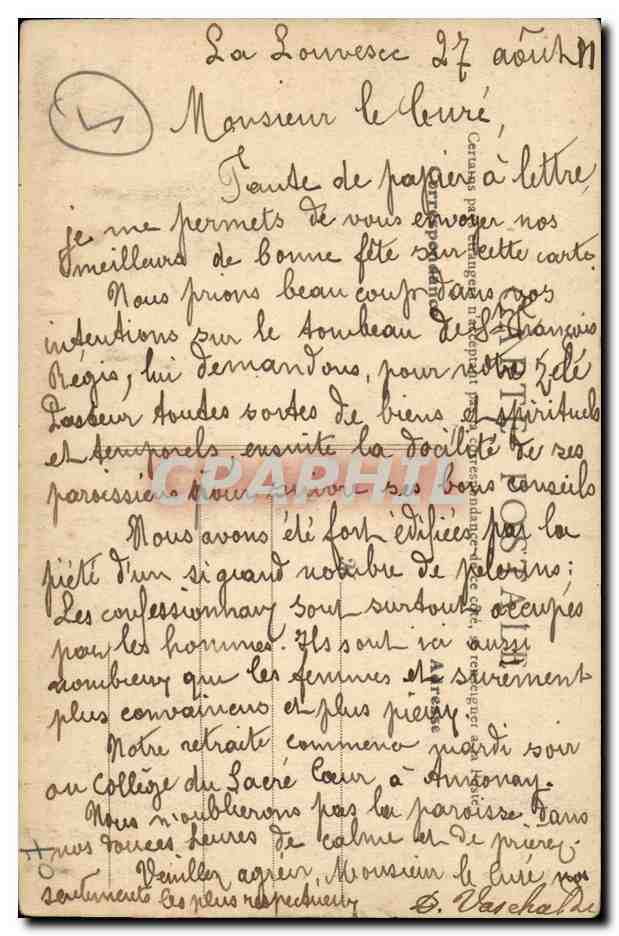 La Louvesc 27 août 11
Monsieur le Curé,
Faute de papier à lettre,
je me permets de vous envoyer nos
meilleurs de bonne fête sur cette carte.
Nous prions beaucoup dans vos
intentions sur le tombeau de St François
Régis, lui demandons, pour notre zélé
Pasteur toutes sortes de biens et spirituels
et temporels ensuite la docilité de ses
paroissiens pour suivre ses bons conseils
Nous avons été fort édifiées par la
piété d'un si grand nombre de pelerins:
Les confessionnaux sont surtout occupés
par les hommes. Ils sont ici aussi
nombreux que les femmes et surement
plus convaincus et plus pieux.
Notre retraite commence mardi soir
au Collège du Sacré Cœur à Annonay.
Nous n'oublierons pas la paroisse dans
nos douces heures de calme et de prière.
Veuillez agréer, Monsieur le Curé nos
sentiments les plus respectueux
Vaschalde
CARTE POSTALE
Correspondance
Adresse
CPAPHIL